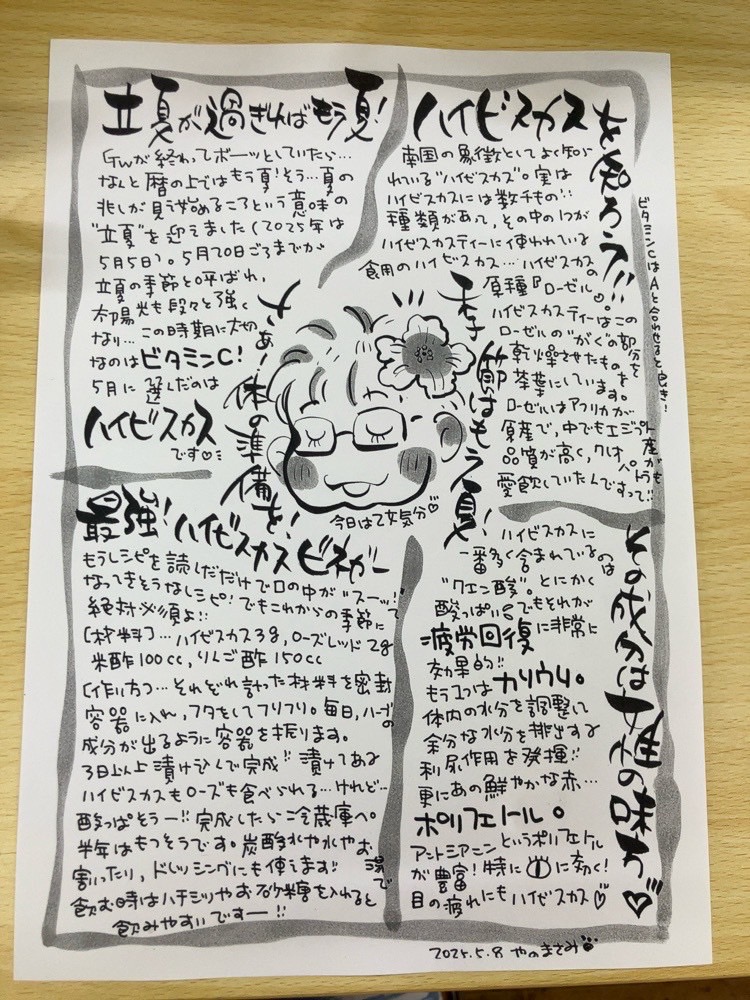 立夏が過ぎればもう夏!
GWが終わってボーッとしていたら…
なんと暦の上ではもう夏!そう…夏の
兆しが見え始めるころという意味の
"立夏"を迎えました(2025年は
5月5日)。5月20日ごろまでが
立夏の季節と呼ばれ,
太陽光も段々と強く
なり…この時期に大切
なのはビタミンC!
5月に選んだのは
ハイビスカス
です♡
さぁ!体の準備を!
ハイビスカスを知ろう!!
南国の象徴としてよく知ら
れている"ハイビスカス"の実は
ハイビスカスには数千もの!!
種類があって,その中の1つが
ハイビスカスティーに使われている
食用のハイビスカス…ハイビスカスの
原種『ローゼル』
ハイビスカスティーはこの
ローゼルの"がく"の部分を
乾燥させたものを
茶葉にしています。
ローゼルはアフリカが
原産で,中でもエジプト産が
品質が高く,クレオパトラも
愛飲していたんですって!!
ビタミンCはAと合わせると良き!
季節はもう夏!
今日は乙女気分♡
最強!ハイビスカスビネガー
もうレシピを読んだだけで口の中が"スーッ"って
なってきそうなレシピ!でもこれからの季節に
絶対必須よ!!
[材料]…ハイビスカス3g,ローズレッド2g
米酢100cc,りんご酢150cc
[作り方]…それぞれ計った材料を密封
容器に入れ,フタをしてフリフリ。毎日,ハーブの
成分が出るように容器を振ります。
3日以上漬け込んで完成!!漬けてある
ハイビスカスもローズも食べられる…けれど…
酸っぱそうー!!完成したらご冷蔵庫へ。
半年はもつそうです。炭酸水や水やお湯で
割ったり,ドレッシングにも使えます!!
飲む時はハチミツやお砂糖を入れると
飲みやすいですー!!
その成分は女性の味方♡
ハイビスカスに
一番多く含まれているのは
"クエン酸"。とにかく
酸っぱい!!でもそれが
疲労回復に非常に
効果的!!
もう1つはカリウム。
体内の水分を調整して
余分な水分を排出する
利尿作用を発揮!!
更にあの鮮やかな赤…
ポリフェノール。
アントシアニンというポリフェノール
が豊富!特に に効く!
目の疲れにもハイビスカス♡
2025.5.8 やのまさみ